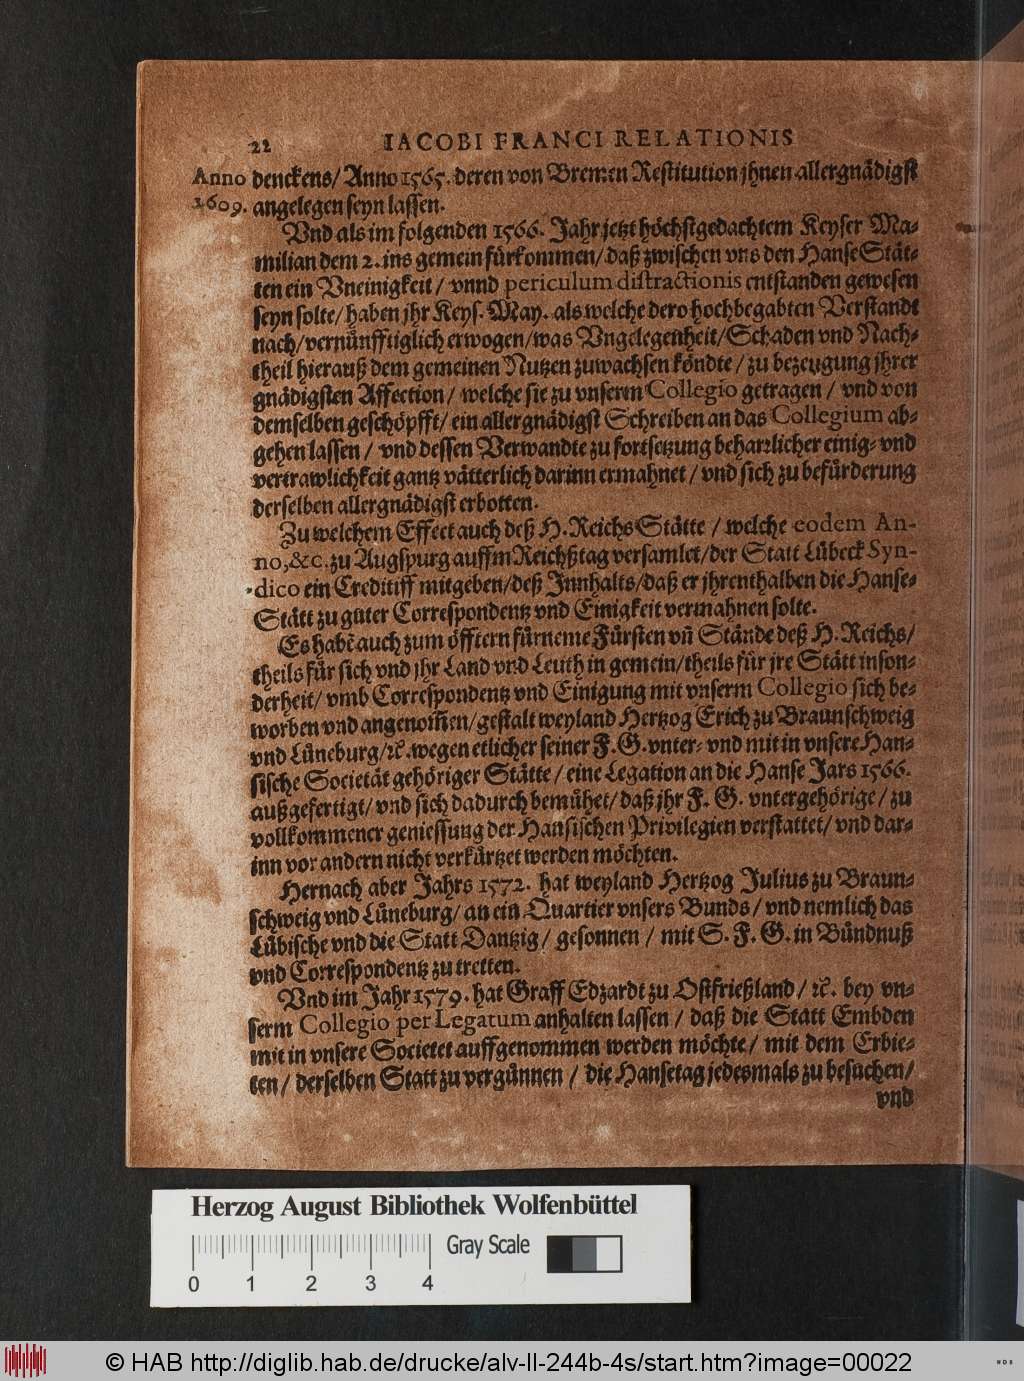 22 IACOBI FRANCI RELATIONIS
Anno denckens/ Anno 1565. deren von Bremen Restitution jhnen allergnädigst
1609. angelegen seyn lassen.
Vnd als im folgenden 1566. Jahr jetzt höchstgedachtem Keyser Ma-
milian dem 2. ins gemein fürkommen/ daß zwischen vns den Hanse Stät-
ten ein Vneinigkeit/ vnnd periculum distractionis entstanden gewesen
seyn solte/ haben jhr Keys. May. als welche dero hochbegabten Verstandt
nach/ vernünfftiglich erwogen/ was Vngelegenheit/ Schaden vnd Nach-
theil hierauß dem gemeinen Nutzen zuwachsen köndte/ zu bezeugung jhrer
gnädigsten Affection/ welche sie zu vnserm Collegio getragen/ vnd von
demselben geschöpfft/ ein allergnädigst Schreiben an das Collegium ab-
gehen lassen/ vnd dessen Verwandte zu fortsetzung beharrlicher einig- vnd
vertrawlichkeit gantz vätterlich darinn ermahnet/ vnd sich zu befürderung
derselben allergnädigst erbotten.
Zu welchem Effect auch deß H. Reichs Stätte/ welche eodem An-
no, &c. zu Augspurg auffm Reichßtag versamlet/ der Statt Lübeck Syn-
dico ein Creditiff mitgeben/ deß Innhalts/ daß er jhrenthalben die Hanse-
Stätt zu guter Correspondentz vnd Einigkeit vermahnen solte.
Es habē auch zum öfftern fürneme Fürsten vñ Stände deß H. Reichs/
theils für sich vnd jhr Land vnd Leuth in gemein/ theils für jre Stätt inson-
derheit/ vmb Correspondentz vnd Einigung mit vnserm Collegio sich be-
worben vnd angenom̃en/ gestalt weyland Hertzog Erich zu Braunschweig
vnd Lüneburg/ ꝛc. wegen etlicher seiner F. G. vnter- vnd mit in vnsere Han-
sische Societät gehöriger Stätte/ eine Legation an die Hanse Jars 1566.
außgefertigt/ vnd sich dadurch bemühet/ daß jhr F. G. vntergehörige/ zu
vollkommener geniessung der Hansischen Privilegien verstattet/ vnd dar-
inn vor andern nicht verkürtzet werden möchten.
Hernach aber Jahrs 1572. hat weyland Hertzog Julius zu Braun-
schweig vnd Lüneburg/ an ein Quartier vnsers Bunds/ vnd nemlich das
Lübische vnd die Statt Dantzig/ gesonnen/ mit S. F. G. in Bündnuß
vnd Correspondentz zu tretten.
Vnd im Jahr 1579. hat Graff Edzardt zu Ostfrießland/ ꝛc. bey vn-
serm Collegio per Legatum anhalten lassen/ daß die Statt Embden
mit in vnsere Societet auffgenommen werden möchte/ mit dem Erbie-
ten/ derselben Statt zu vergünnen/ die Hansetag jedesmals zu besuchen/
vnd
Herzog August Bibliothek Wolfenbüttel
Gray Scale
0 1 2 3 4
© HAB http://diglib.hab.de/drucke/alv-ll-244b-4s/start.htm?image=00022